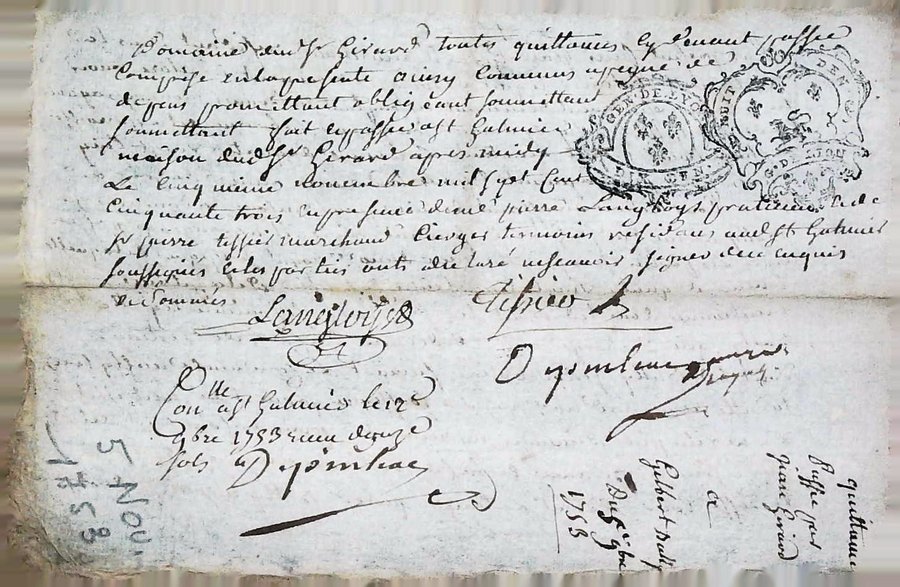 Domaine dud Sr Girard toutes quittances cy devant passé
Comprise en la presente ainsy Convenus a peyne de
depens promettant obligeant soumettant
soumettant fait et passé a St Galmier
maison dud Sr Girard apres midy
Le Cinqmieme novembre mil sept Cent
Cinquante trois en presence de me pierre Langloys praticien et de
Sr pierre tissier marchand Cierger temoins residans aud St Galmier
soussignés et les parties onts declaré ne scavoir signer de ce enquis
et Sommés
GEN DE LYON
DEN
G. D.
Langloys
Tissier
Con.lle a St Galmier le 12e
9bre 1753 receu douze
sols
5 NOV.
1753
quittance
passée par
jean Girard
a
Gilbert
Du 5e 9bre
1753